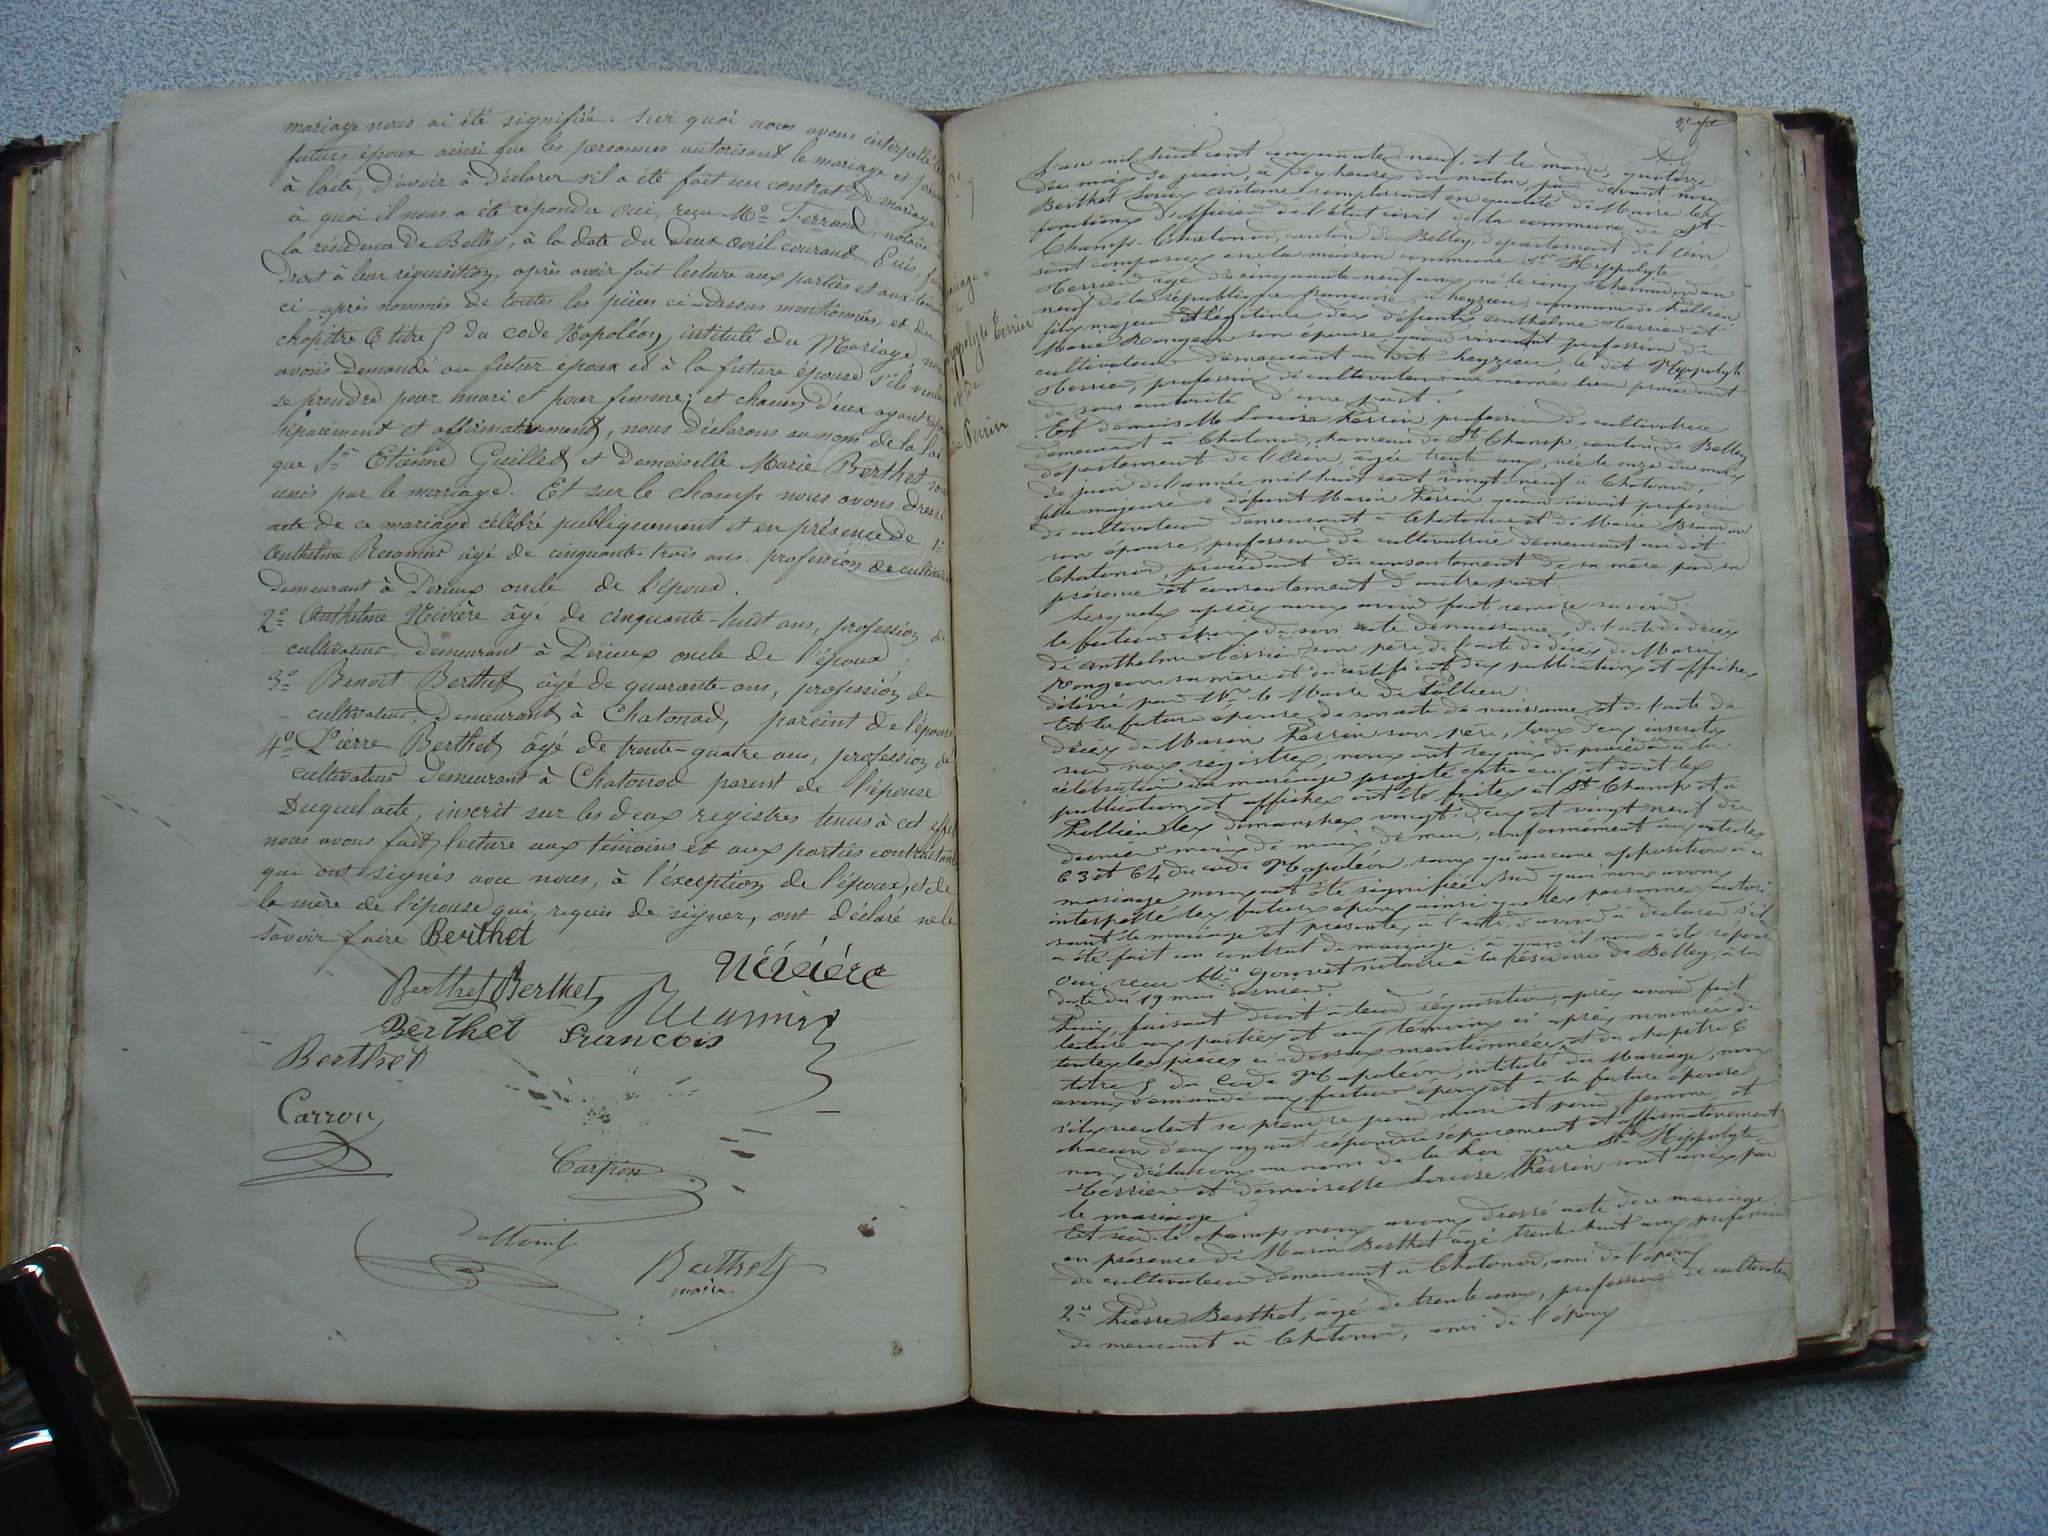 mariage nous ai été signifiée. Sur quoi nous avons interpellé les
futurs époux ainsi que les personnes autorisant le mariage et
à l'acte, d'avoir à déclarer s'il a été fait un contrat de mariage
à quoi il nous a été répondu oui, reçu Me Ferrand, notaire
la résidence de Belley, à la date du deux avril courant. Puis,
droit à leur réquisition, après avoir fait lecture aux parties et aux
ci-après nommés de toutes les pièces ci-dessus mentionnées, et du
chapitre 6 titre 5 du code Napoléon, intitulé du Mariage, nous
avons demandé au futur époux et à la future épouse s'ils veulent
se prendre pour mari et pour femme; et chacun d'eux ayant
séparément et affirmativement, nous déclarons au nom de la loi
que Sr Etienne Guillet et demoiselle Marie Berthet sont
unis par le mariage. Et sur le champ nous avons dressé
acte de ce mariage célébré publiquement et en présence de 1o
Anthelme Récamier âgé de cinquante-trois ans, profession de cultivateur
demeurant à Perieux oncle de l'époux.
2o Anthelme Nivière âgé de cinquante-huit ans, profession de
cultivateur, demeurant à Perieux oncle de l'époux
3o Benoit Berthet âgé de quarante-ans, profession de
cultivateur, demeurant à Chatonod, pareint de l'épouse
4o Pierre Berthet âgé de trente-quatre ans, profession de
cultivateur demeurant à Chatonod parent de l'épouse
Duquel acte, inscrit sur les deux registres tenus à cet effet
nous avons fait lecture aux témoins et aux parties contractantes
qui ont signés avec nous, à l'exception de l'époux, et de
la mère de l'épouse qui, requis de signer, ont déclaré ne le
savoir faire Berthet
Nivière
Berthet Berthet Récamier
Berthet François
Berthet
Carron
Carpin
Berthet
maire
hyppolyte Terrier
et
Perrin
L'an mil huit cent cinquante neuf, et le mardi quatorze
du mois de juin, à dix heures du matin, par devant nous
Berthet Louis Antoine remplissant en qualité de Maire les
fonctions d'officier de l'état civil de la commune de St
Champ-Chatonod, canton de Belley, département de l'ain,
sont comparus en la maison commune Sr Hippolyte
Terrier âgé de cinquante neuf ans, né le cinq thermidor an
neuf de la république française, à heyrieu, commune de Pollieu
fils majeur et légitime des défunts Anthelme Terrier et
Marie Rongeon son épouse quand vivaient profession de
cultivateur demeurant au dit heyrieu, le dit Hyppolyte
Terrier, profession de cultivateur au même lieu procédant
de son autorité d'une part.
Et demoiselle Louise Perrin profession de cultivatrice
demeurant à Chatonod, hameau de St Champ, canton de Belley
département de l'ain, âgée trente ans, née le onze du mois
de juin de l'année mil huit cent vingt neuf à Chatonod,
fille majeure de défunt Marin Perrin, quand vivait profession
de cultivateur demeurant à Chatonod et de Marie
son épouse, profession de cultivatrice demeurant au dit
Chatonod, procédant du consentement de sa mère par sa
présence et consentement d'autre part
Lesquels après nous avoir fait remise savoir:
le futur époux de son acte de naissance, de l'acte de décès
de Anthelme Terrier son père, de l'acte de décès de Marie
Rongeon sa mère et du certificat des publications et affiches
délivré par Mr le Maire de Pollieu.
Et la future épouse, de son acte de naissance et de l'acte de
décès de Marin Perrin son père, tous deux inscrits
sur nos régistres, nous ont requis de procéder à la
célébration du mariage projeté entre eux, et dont les
publications et affiches ont été faites à St Champ et à
Pollieu les dimanches vingt-deux et vingt neuf du
dernier mois de mai, conformément aux articles
63 et 64 du code Napoléon, sans qu'aucune opposition à ce
mariage nous ait été signifiée. Sur quoi nous avons
interpellé les futurs époux ainsi que les personnes autori
sant le mariage et présentes à l'acte, d'avoir à déclarer s'il
a été fait un contrat de mariage, à quoi il nous a été répondu
oui, reçu Me Gouvet notaire à la résidence de Belley, à la
date du 19 mai dernier.
Puis, faisant droit à leur réquisition, après avoir fait
lecture aux parties et aux témoins ci après nommés de
toutes les pièces ci-dessus mentionnées, et du chapitre 6
titre 5 du Code Napoléon, intitulé du Mariage, nous
avons demandé aux futur époux et à la future épouse
s'ils veulent se prendre pour mari et pour femme, et
chacun d'eux ayant répondu séparément et affirmativement
nous déclarons au nom de la loi que Sr Hippolyte
Terrier et demoiselle Louise Perrin sont unis par
le mariage.
Et sur le champ nous avons dressé acte de ce mariage
en présence de Marin Berthet âgé trente huit ans profession
de cultivateur demeurant à Chatonod, ami de l'époux
2o Pierre Berthet, âgé de trente ans, profession de cultivateur
demeurant à Chatonod, ami de l'époux